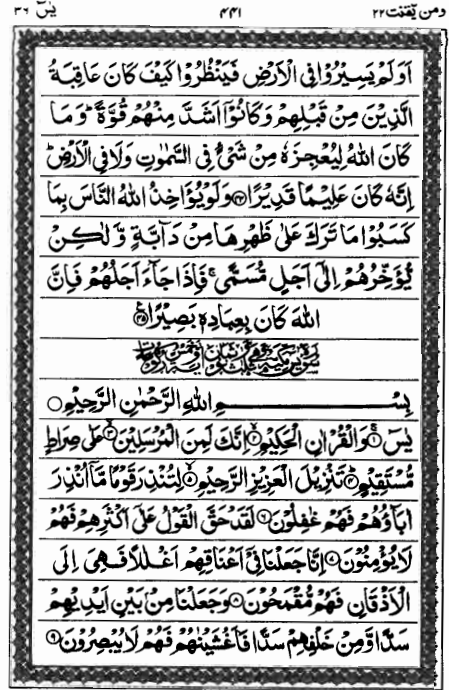 ومن يقنت ٢٢ ٤٤١ يٰسٓ ٣٦
اَوَلَمْ يَسِيْرُوْا فِى الْاَرْضِ فَيَنْظُرُوْا كَيْفَ كَانَ عَاقِبَةُ
الَّذِيْنَ مِنْ قَبْلِهِمْ وَكَانُوْٓا اَشَدَّ مِنْهُمْ قُوَّةً ؕ وَمَا
كَانَ اللّٰهُ لِيُعْجِزَهٗ مِنْ شَىْءٍ فِى السَّمٰوٰتِ وَلَا فِى الْاَرْضِ ؕ
اِنَّهٗ كَانَ عَلِيْمًا قَدِيْرًا ﴿۴۴﴾ وَلَوْ يُؤَاخِذُ اللّٰهُ النَّاسَ بِمَا
كَسَبُوْا مَا تَرَكَ عَلٰى ظَهْرِهَا مِنْ دَآبَّةٍ وَّلٰكِنْ
يُّؤَخِّرُهُمْ اِلٰٓى اَجَلٍ مُّسَمًّى ۚ فَاِذَا جَآءَ اَجَلُهُمْ فَاِنَّ
اللّٰهَ كَانَ بِعِبَادِهٖ بَصِيْرًا ﴿۴۵﴾
بِسْمِ اللّٰهِ الرَّحْمٰنِ الرَّحِيْمِ
يٰسٓ ﴿۱﴾ وَالْقُرْاٰنِ الْحَكِيْمِ ﴿۲﴾ اِنَّكَ لَمِنَ الْمُرْسَلِيْنَ ﴿۳﴾ عَلٰى صِرَاطٍ
مُّسْتَقِيْمٍ ﴿۴﴾ تَنْزِيْلَ الْعَزِيْزِ الرَّحِيْمِ ﴿۵﴾ لِتُنْذِرَ قَوْمًا مَّاۤ اُنْذِرَ
اٰبَآؤُهُمْ فَهُمْ غٰفِلُوْنَ ﴿۶﴾ لَقَدْ حَقَّ الْقَوْلُ عَلٰٓى اَكْثَرِهِمْ فَهُمْ
لَا يُؤْمِنُوْنَ ﴿۷﴾ اِنَّا جَعَلْنَا فِىْٓ اَعْنَاقِهِمْ اَغْلٰلًا فَهِىَ اِلَى
الْاَذْقَانِ فَهُمْ مُّقْمَحُوْنَ ﴿۸﴾ وَجَعَلْنَا مِنْۢ بَيْنِ اَيْدِيْهِمْ
سَدًّا وَّمِنْ خَلْفِهِمْ سَدًّا فَاَغْشَيْنٰهُمْ فَهُمْ لَا يُبْصِرُوْنَ ﴿۹﴾